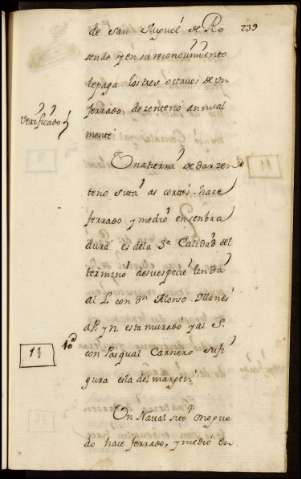 239
de San Miguel de Ro
sende y en su reconocimiento
le paga los tres octavos de un
ferrado de zenteno anual
mente
Verificado
Una tierra de dar zen
teno sita as cortes hace
ferrado y medio en sembra
dura es dela 3ª Calidad del
termino desu especie linda
al L. con Dn Alonso
a P. y N. esta murado y al S.
con Pasqual Carnero Su fi
gura ela del margen
11
Un Naval sito
do hace ferrado, y medio en